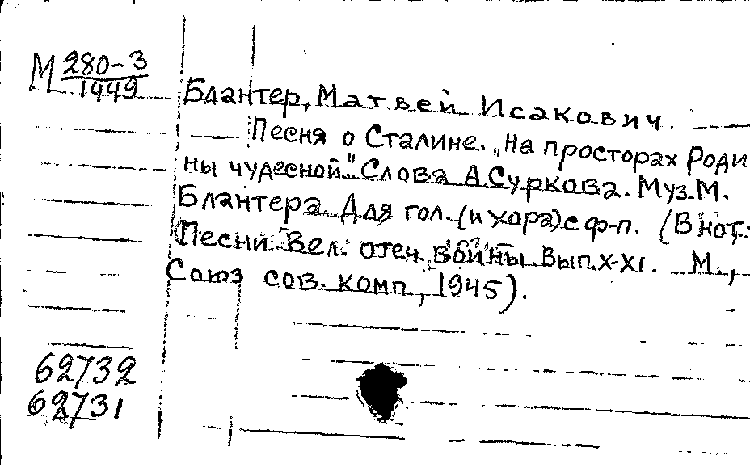 М 280-3
1449
Блантер, Матвей Исакович.
Песня о Сталине. „На просторах Роди
ны чудесной" Слова А.Суркова. Муз.М.
Блантера. Для гол. (и хора) с ф-п. (В нот.:
Песни Вел. отеч. войны. Вып.X-XI. М.,
Союз сов. комп., 1945).
62732
62731